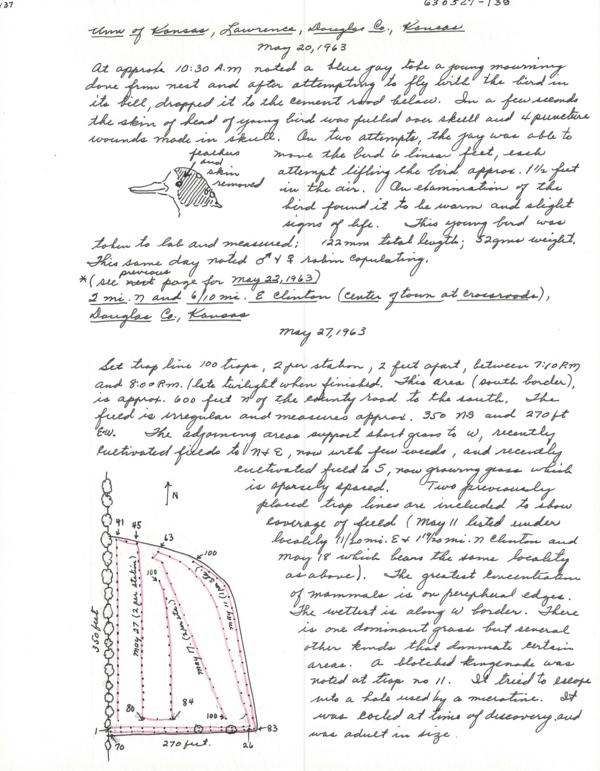 137
630527-138
Univ of Kansas, Lawrence, Douglas Co., Kansas
May 20, 1963
At approx 10:30 A.M noted a blue jay take a young mourning
dove from nest and after attempting to fly with the bird in
its bill, dropped it to the cement road below. In a few seconds
the skin of head of young bird was pulled over skull and 4 puncture
wounds made in skull. On two attempts, the jay was able to
feathers and skin removed
move the bird 6 linear feet, each
attempt lifting the bird approx. 1 1/2 feet
in the air. An examination of the
bird found it to be warm and slight
signs of life. This young bird was
taken to lab and measured: 122mm total length; 52gms weight.
This same day noted ♂ & ♀ robin copulating.
*(see next previous page for May 22, 1963)
2 mi. N and 6/10 mi. E Clinton (center of town at crossroads),
Douglas Co., Kansas
May 27, 1963
Set trap line 100 traps, 2 per station, 2 feet apart, between 7:10 PM
and 8:00 PM. (late twilight when finished. This area (south border),
is approx. 600 feet N of the county road to the south. The
field is irregular and measures approx. 350 NS and 270 ft
EW. The adjoining areas support short grass to W, recently
cultivated fields to N & E, now with few weeds, and recently
cultivated field to S, now growing grass which
is sparsely spaced. Two previously
placed trap lines are included to show
coverage of field (May 11 listed under
locality 11/20 mi. E & 1 19/20 mi. N Clinton and
May 18 which bears the same locality
as above). The greatest concentration
of mammals is on peripheral edges.
The wettest is along W border. There
is one dominant grass but several
other kinds that dominate certain
areas. A blotched kingsnake was
noted at trap no 11. It tried to escape
into a hole used by a microtine. It
was coiled at time of discovery and
was adult in size.
N
91
45
63
100
100
350 feet
May 27 (2 per station)
May 17 (2 per sta.)
May 11
80
84
100
1
70
270 feet.
26
83